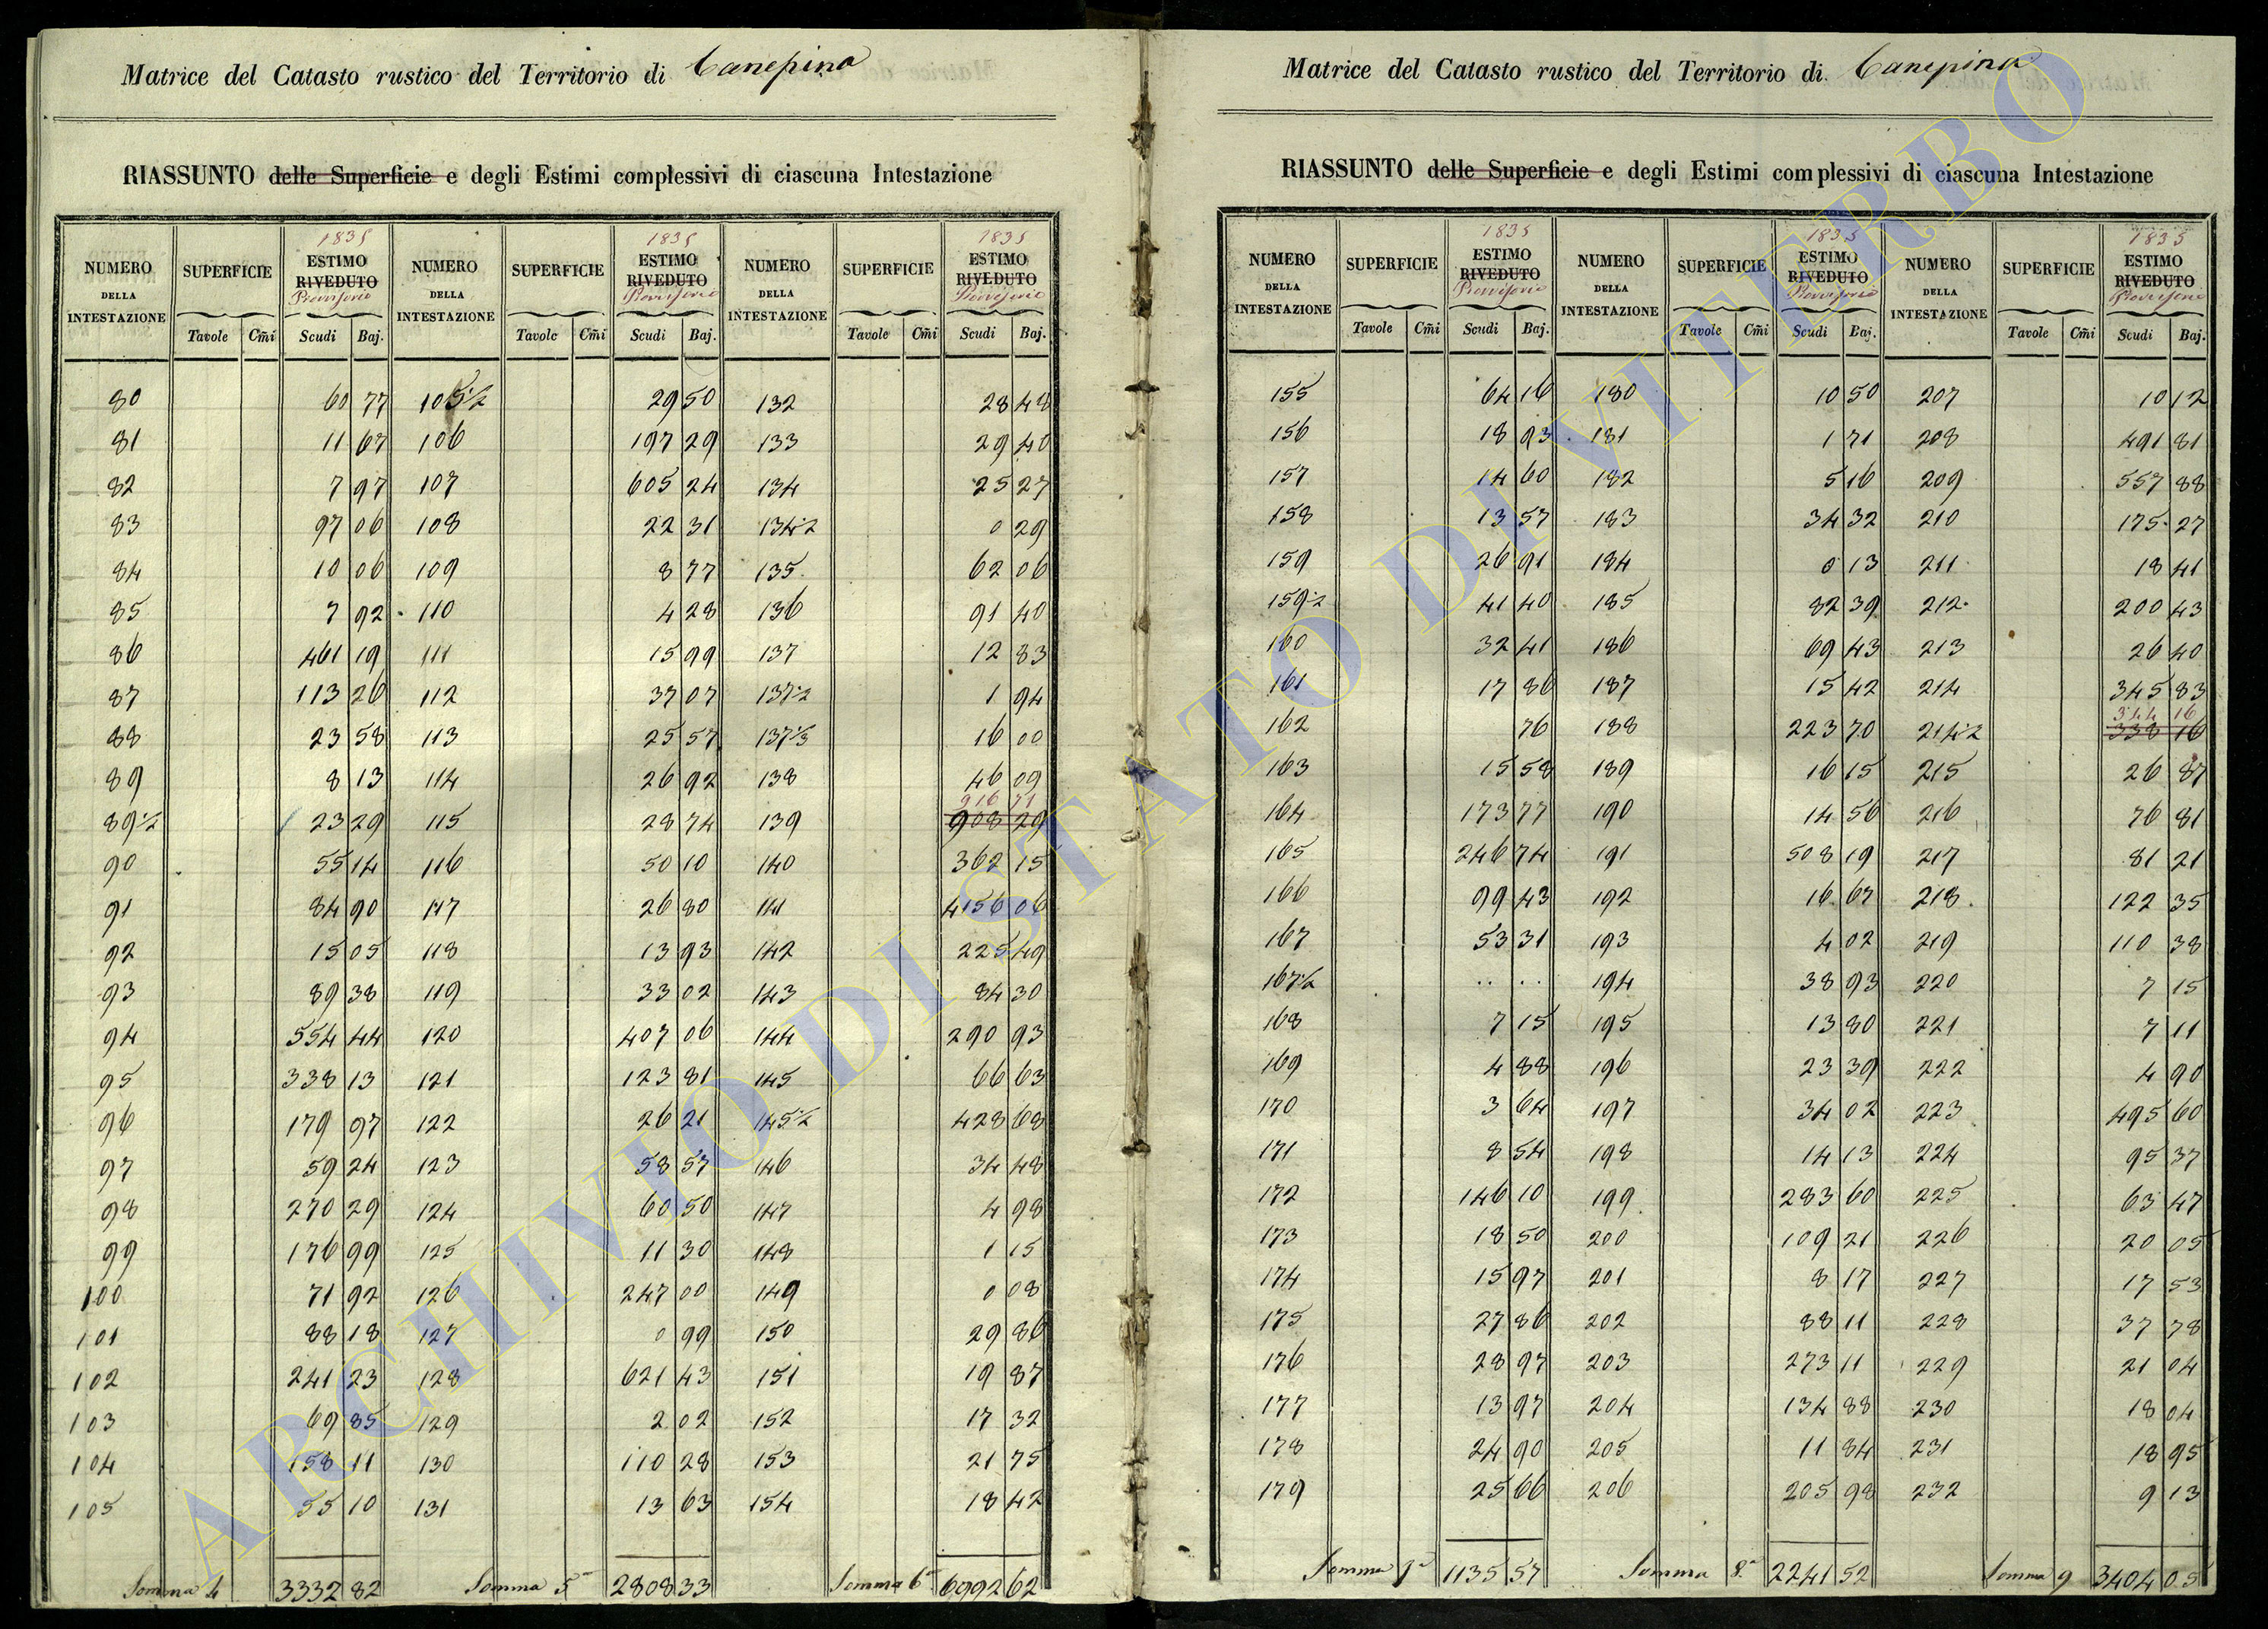 Matrice del Catasto rustico del Territorio di Canepina
RIASSUNTO delle Superficie e degli Estimi complessivi di ciascuna Intestazione
1835 1835 1835
NUMERO DELLA INTESTAZIONE SUPERFICIE ESTIMO RIVEDUTO Provvisorio NUMERO DELLA INTESTAZIONE SUPERFICIE ESTIMO RIVEDUTO Provvisorio NUMERO DELLA INTESTAZIONE SUPERFICIE ESTIMO RIVEDUTO Provvisorio
Tavole Cm̃i Scudi Baj. Tavole Cm̃i Scudi Baj. Tavole Cm̃i Scudi Baj.
80 60 77 105½ 29 50 132 28 48
81 11 67 106 197 29 133 29 40
82 7 97 107 605 24 134 25 27
83 97 06 108 22 31 134½ 0 29
84 10 06 109 8 77 135 62 06
85 7 92 110 4 28 136 91 40
86 461 19 111 15 99 137 12 83
87 113 26 112 37 07 137½ 1 94
88 23 58 113 25 57 137⅓ 16 00
89 8 13 114 26 92 138 46 09
916 71
89½ 23 29 115 28 74 139 908 29
90 55 14 116 50 10 140 362 15
91 84 90 117 26 80 141 4156 06
92 15 05 118 13 93 142 225 49
93 89 38 119 33 02 143 84 30
94 554 44 120 407 06 144 290 93
95 338 13 121 123 81 145 66 63
96 179 97 122 26 21 145½ 428 68
97 59 24 123 58 57 146 34 48
98 270 29 124 60 50 147 4 98
99 176 99 125 11 30 148 1 15
100 71 92 126 247 00 149 0 08
101 88 18 127 0 99 150 29 86
102 241 23 128 621 43 151 19 87
103 69 85 129 2 02 152 17 32
104 158 11 130 110 28 153 21 75
105 55 10 131 13 63 154 18 42
Somma 4 3332 82 Somma 5ª 2808 33 Somma 6ª 6992 62
Matrice del Catasto rustico del Territorio di Canepina
RIASSUNTO delle Superficie e degli Estimi complessivi di ciascuna Intestazione
1835 1835 1835
NUMERO DELLA INTESTAZIONE SUPERFICIE ESTIMO RIVEDUTO Provvisorio NUMERO DELLA INTESTAZIONE SUPERFICIE ESTIMO RIVEDUTO Provvisorio NUMERO DELLA INTESTAZIONE SUPERFICIE ESTIMO RIVEDUTO Provvisorio
Tavole Cm̃i Scudi Baj. Tavole Cm̃i Scudi Baj. Tavole Cm̃i Scudi Baj.
155 64 16 180 10 50 207 10 12
156 18 93 181 1 71 208 491 81
157 14 60 182 5 16 209 557 88
158 13 57 183 34 32 210 175 27
159 26 91 184 0 13 211 18 41
159½ 41 40 185 82 39 212 200 43
160 32 41 186 69 43 213 26 40
161 17 86 187 15 42 214 345 83
344 16
162 76 188 223 70 214½ 338 16
163 15 58 189 16 15 215 26 87
164 173 77 190 14 56 216 76 81
165 246 74 191 508 19 217 81 21
166 99 43 192 16 67 218 122 35
167 53 31 193 4 02 219 110 38
167½ .. .. 194 38 93 220 7 15
168 7 15 195 13 80 221 7 11
169 4 88 196 23 39 222 4 90
170 3 64 197 34 02 223 495 60
171 8 54 198 14 13 224 95 37
172 146 10 199 283 60 225 63 47
173 18 50 200 109 21 226 20 05
174 15 97 201 8 17 227 17 53
175 27 86 202 88 11 228 37 78
176 28 97 203 273 11 229 21 04
177 13 97 204 134 88 230 18 04
178 24 90 205 11 84 231 18 95
179 25 66 206 205 98 232 9 13
Somma 7ª 1135 57 Somma 8ª 2241 52 Somma 9 3404 05
ARCHIVIO DI STATO DI VITERBO